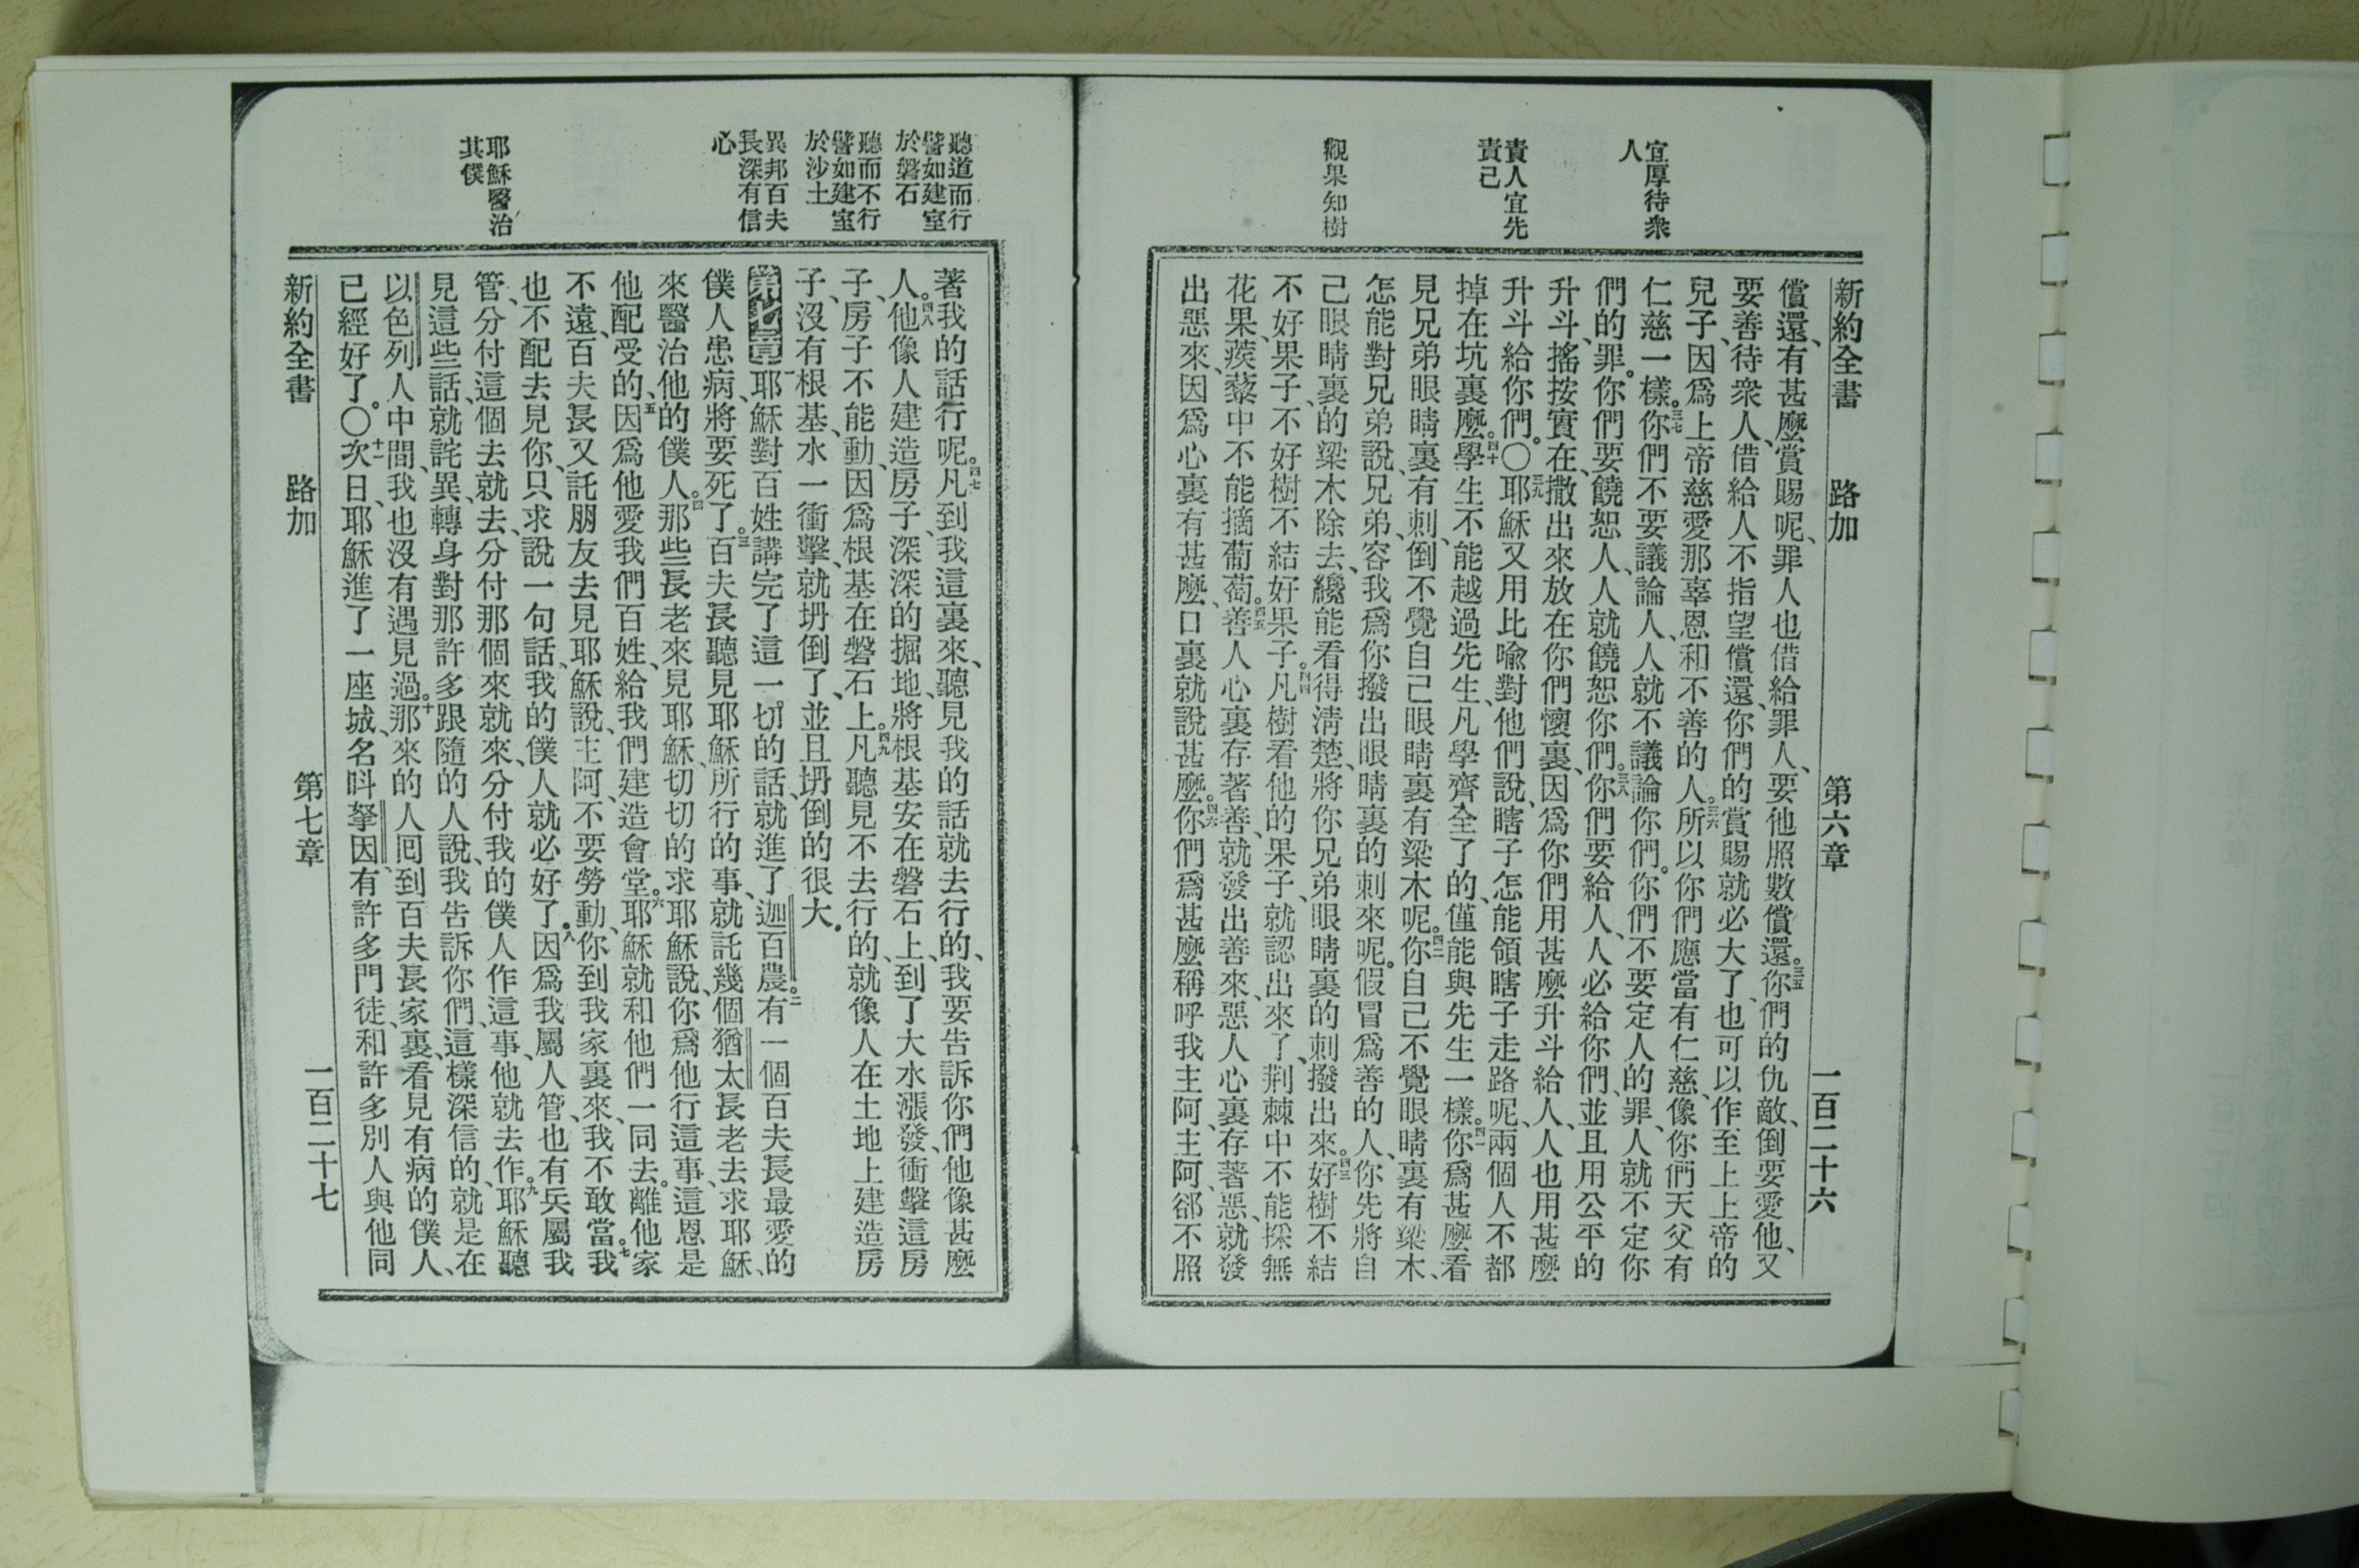 宜厚待衆
人
責人宜先
責己
觀果知樹
新約全書 路加 第六章 一百二十六
償還、有甚麽賞賜呢、罪人也借給罪人、要他照數償還。三五你們的仇敵、倒要愛他、又
要善待衆人、借給人不指望償還、你們的賞賜就必大了、也可以作至上上帝的
兒子、因爲上帝慈愛那辜恩、和不善的人。三六所以你們應當有仁慈、像你們天父有
仁慈一樣。三七你們不要議論人、人就不議論你們。你們不要定人的罪、人就不定你
們的罪。你們要饒恕人、人就饒恕你們。三八你們要給人、人必給你們、並且用公平的
升斗、搖按實在、撒出來放在你們懷裏、因爲你們用甚麽升斗給人、人也用甚麽
升斗給你們。〇三九耶穌又用比喩對他們說、瞎子怎能領瞎子走路呢、兩個人不都
掉在坑裏麽。四十學生不能越過先生、凡學齊全了的、僅能與先生一樣。四一你爲甚麽看
見兄弟眼睛裏有刺、倒不覺自己眼睛裏有梁木呢。四二你自己不覺眼睛裏有梁木、
怎能對兄弟說、兄弟、容我爲你撥出眼睛裏的刺來呢。假冒爲善的人、你先將自
己眼睛裏的梁木除去、纔能看得淸楚、將你兄弟眼睛裏的刺撥出來。四三好樹不結
不好果子、不好樹不結好果子。四四凡樹看他的果子、就認出來了、荆棘中不能採無
花果、蒺藜中不能摘葡萄。四五善人心裏存著善、就發出善來、惡人心裏存著惡、就發
出惡來、因爲心裏有甚麽、口裏就說甚麽。四六你們爲甚麽稱呼我主阿、主阿、郤不照
聽道而行
譬如建室
於磐石
聽而不行
譬如建室
於沙土
異邦百夫
長深有信
心
耶穌醫治
其僕
著我的話行呢。四七凡到我這裏來、聽見我的話就去行的、我要告訴你們他像甚麽
人。四八他像人建造房子、深深的掘地、將根基安在磐石上、到了大水漲發、衝擊這房
子、房子不能動、因爲根基在磐石上。四九凡聽見不去行的、就像人在土地上建造房
子、沒有根基、水一衝擊、就坍倒了、並且坍倒的很大。
第七章 一耶穌對百姓講完了這一切的話、就進了迦百農。二有一個百夫長最愛的
僕人患病、將要死了。三百夫長聽見耶穌所行的事、就託幾個猶太長老去求耶穌、
來醫治他的僕人。四那些長老來見耶穌、切切的求耶穌說、你爲他行這事、這恩是
他配受的、五因爲他愛我們百姓、給我們建造會堂。六耶穌就和他們一同去。離他家
不遠、百夫長又託朋友去見耶穌說、主阿、不要勞動、你到我家裏來、我不敢當。七我
也不配去見你、只求說一句話、我的僕人就必好了。八因爲我屬人管、也有兵屬我
管、分付這個去就去、分付那個來就來、分付我的僕人作這事、他就去作。九耶穌聽
見這些話、就詫異、轉身對那許多跟隨的人說、我告訴你們、這樣深信的、就是在
以色列人中間、我也沒有遇見過。十那來的人囘到百夫長家裏、看見有病的僕人、
已經好了。〇十一次日、耶穌進了一座城、名呌拏因、有許多門徒、和許多別人與他同
新約全書 路加 第七章 一百二十七